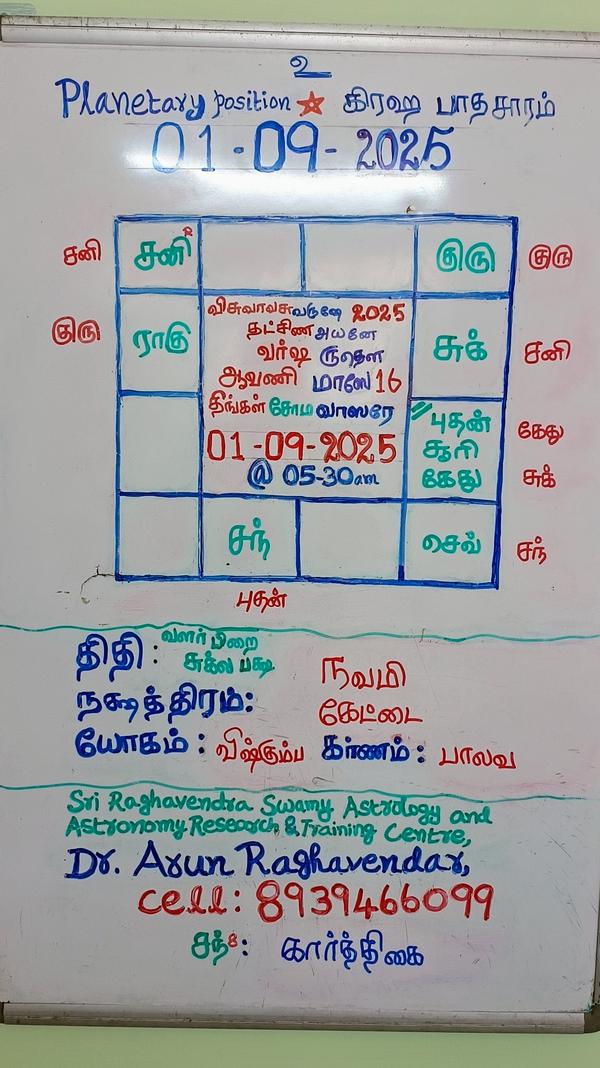 உ
Planetary position ☆ கிரஹ பாதசாரம்
01-09-2025
சனி சனி R குரு குரு
குரு ராகு சுக் சனி
விசுவாவசுவருஷே 2025
தட்சிண அயனே
வர்ஷ ருதௌ
ஆவணி மாஸே 16
திங்கள் சோம வாஸரே
01-09-2025
@ 05-30am
புதன் கேது
சூரி
கேது சுக்
சந் செவ் சந்
புதன்
திதி: வளர் பிறை
சுக்ல பக்ஷ நவமி
நக்ஷத்திரம்: கேட்டை
யோகம்: விஷ்கும்ப கர்ணம்: பாலவ
Sri Raghavendra Swamy Astrology and
Astronomy Research & Training Centre,
Dr. Arun Raghavendar,
cell: 8939466099
சந்8: கார்த்திகை